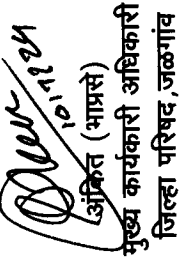 अंकित (भाप्रसे)
मुख्य कार्यकारी अधिकारी
जिल्हा परिषद, जळगांव